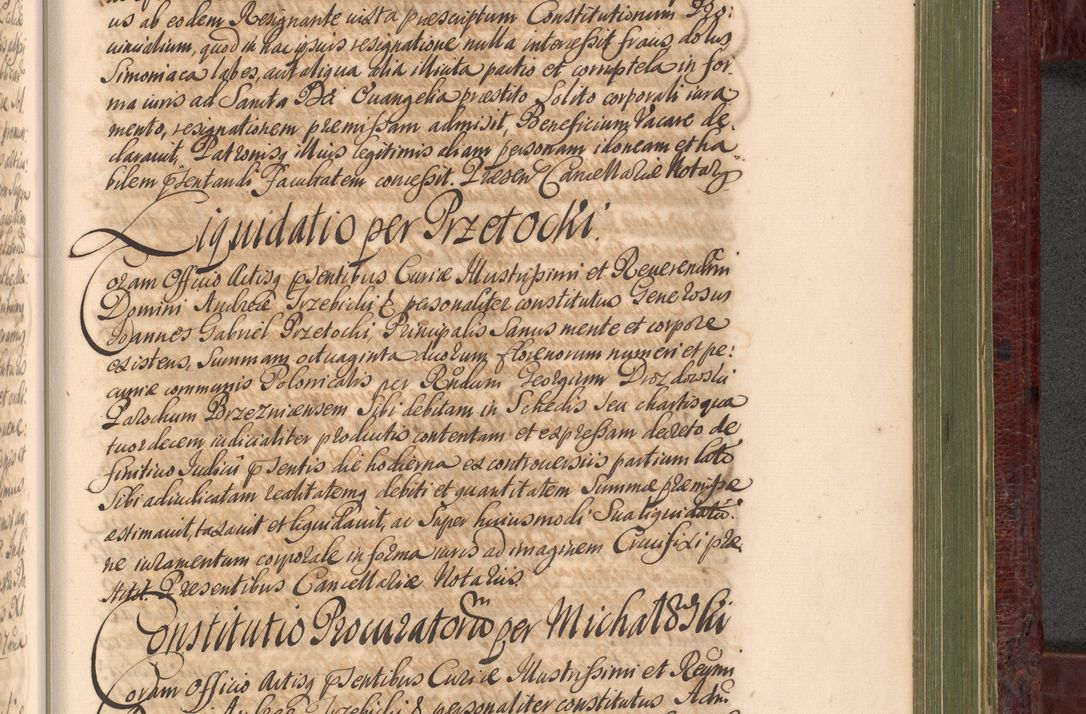 us ab eodem Resignante iuxta præscriptum Constitutionum Pro:
vincialium, quod in hac ipsius resignatione nulla interessit fraus, dolus
Simoniaca labes, aut aliqua alia illicita pactio et corruptela in for
ma iuris ad Sancta Dei Euangelia præstito solito corporali iura
mento, resignationem premissam admisit, Beneficium Vacare de
clarauit, Patronisq illius legitimis aliam personam idoneam et ha
bilem psentandi Facultatem concessit. Præsen Cancellariæ Notarijs
Liquidatio per Przetocki.
Coram Officio Actisq psentibus Curiæ Illustrissimi et Reuerendmi
Domini Andreæ Trzebicki & personaliter constitutus Generosus
Joannes Gabriel Przetocki, Principalis Sanus mente et corpore
existens, Summam octuaginta duorum florenorum numeri et pe:
cuniæ communis Polonicalis per Rndum Georgium Drozdowski
Parochum Brzeznicensem Sibi debitam in Schedis seu chartis qua
tuordecem iudicialiter productis contentam et expressam decreto de
finitiuo Iudicii psentis die hodierna ex controuersiis partium lato
Sibi adiudicatam realitatemq debiti et quantitatem Summæ præmissæ
æstimauit, taxauit et liquidauit, ac Super huiusmodi Sua liquidatio
ne iuramentum corporale in forma iuris ad imaginem Crucifixi præ
stitit. Præsentibus Cancellariæ Notariis
Constitutio Procuratorum per Michałowski
Coram Officio Actisq psentibus Curiæ Illustrissimi et Reumi
Domini Andreæ Trzebicki & personaliter constitutus Adm.